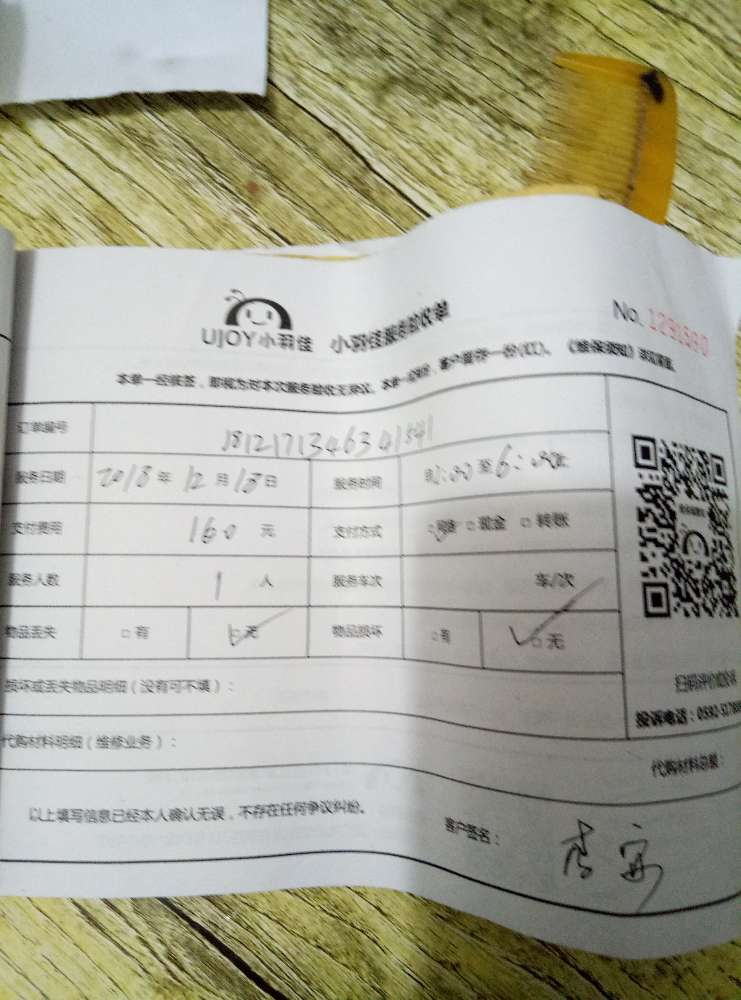 UJOY小羽佳 小羽佳服务验收单
No. 1291590
本单一经接签，即视为对本次服务验收无异议。本单一式两份，客户留存一份(红)。《维保须知》详见背面
订单编号 18121713463341841
服务日期 2018年12月18日 服务时间 至6:00止
支付费用 160 元 支付方式 □网络 □现金 □转账
服务人数 1 人 服务车次 车/次
物品丢失 □有 □无 物品损坏 □有 □无
损坏或丢失物品明细（没有可不填）：
代购材料明细（维修业务）：
代购材料总额：
扫码评价或投诉
投诉电话：0592-
以上填写信息已经本人确认无误，不存在任何争议纠纷。
客户签名：